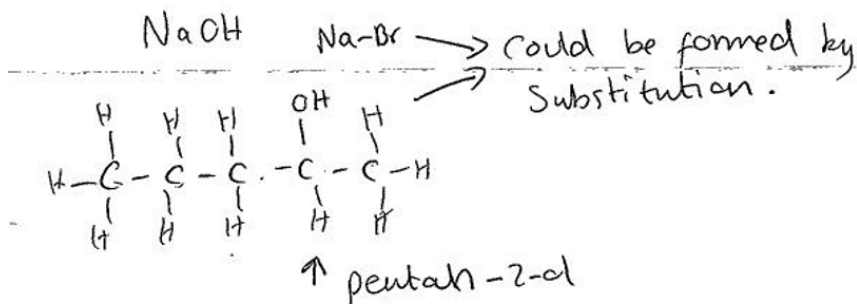 NaOH Na-Br → Could be formed by
Substitution.
H H H OH H
H-C-C-C-C-C-H
H H H H H
↑ pentan-2-ol